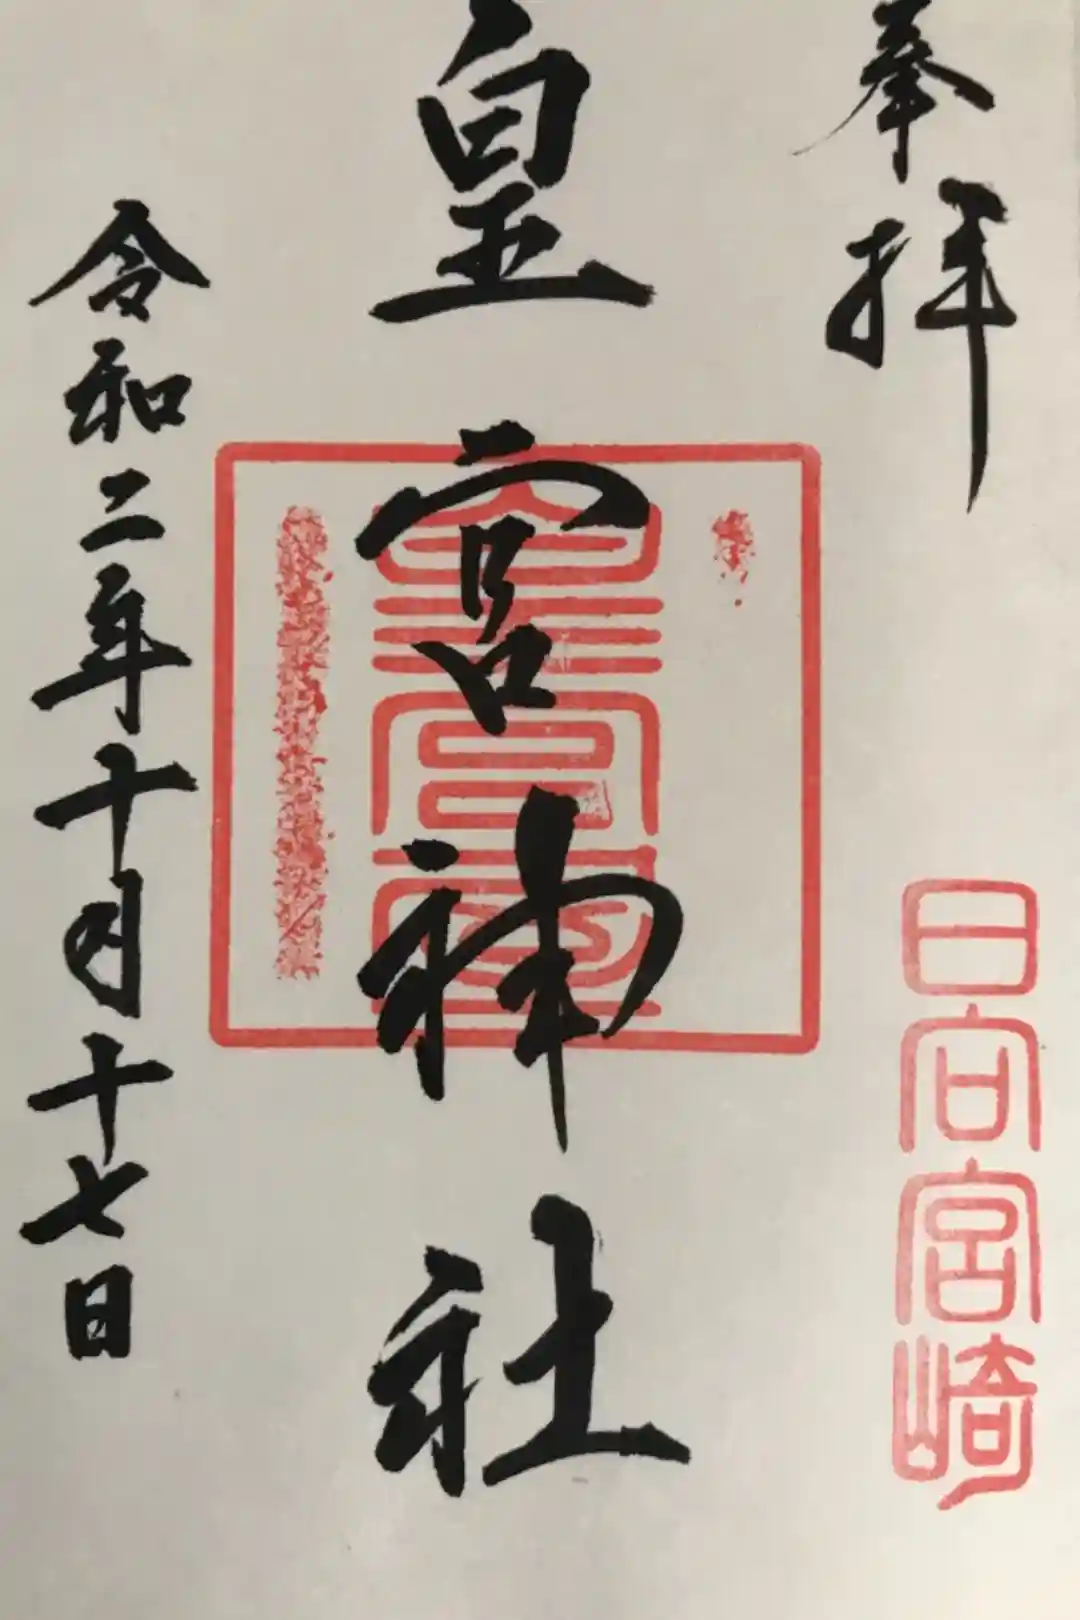 奉拝
日向宮崎
皇宮神社
皇宮
令和二年十月十七日